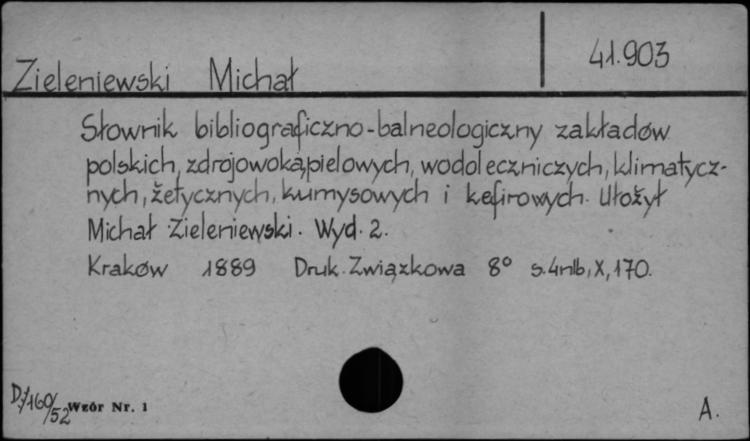 41.903
Zieleniewski Michał
Słownik bibliograficzno-balneologiczny zakładów
polskich, zdrojowokąpielowych, wodoleczniczych, klimatycz-
nych, żetycznych, kumysowych i kefirowych. Ułożył
Michał Zieleniewski. Wyd. 2.
Kraków 1889 Druk. Związkowa 8° s. 4nlb, X, 170.
D/160/52 Wzór Nr. 1
A.